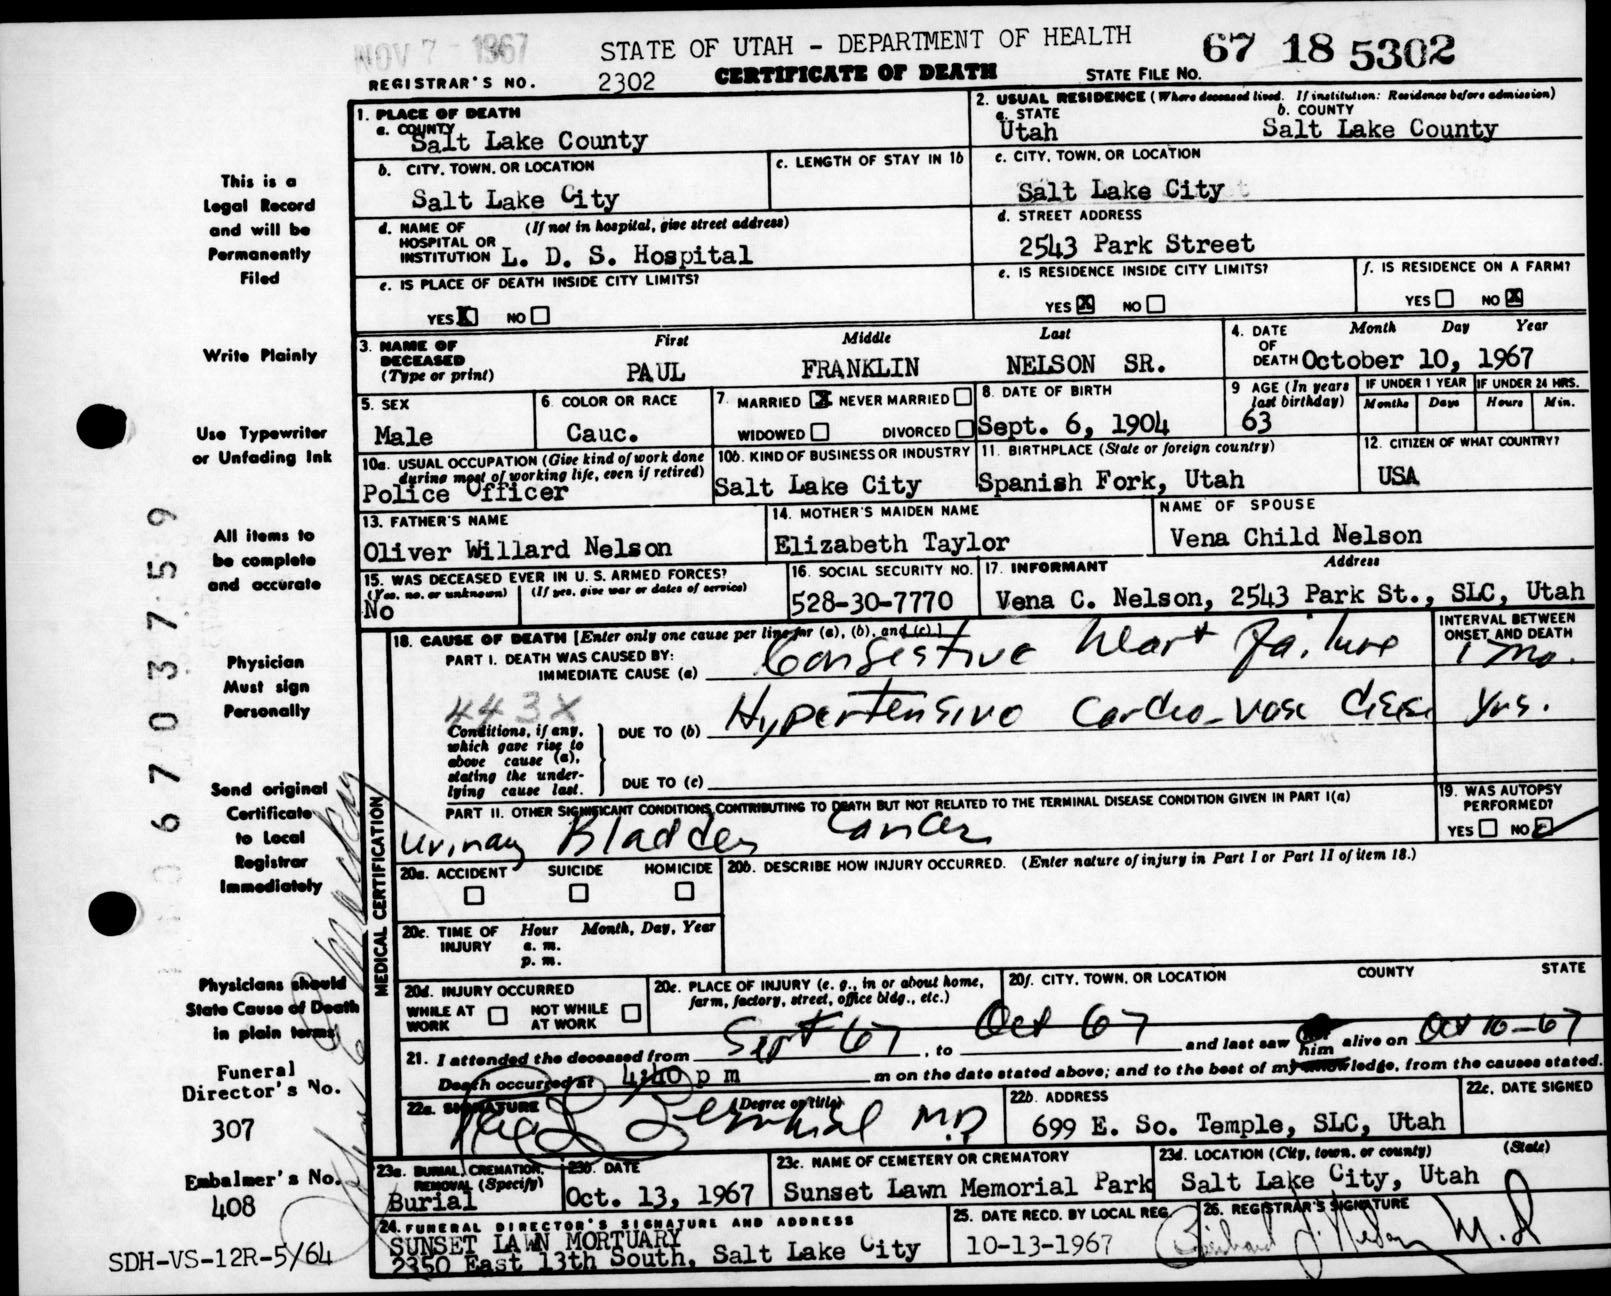 NOV 7 - 1967
STATE OF UTAH - DEPARTMENT OF HEALTH
67 18 5302
REGISTRAR'S NO. 2302 CERTIFICATE OF DEATH STATE FILE NO.
1. PLACE OF DEATH
a. COUNTY
Salt Lake County
2. USUAL RESIDENCE (Where deceased lived. If institution: Residence before admission)
a. STATE
Utah
b. COUNTY
Salt Lake County
b. CITY, TOWN, OR LOCATION
Salt Lake City
c. LENGTH OF STAY IN 1b
c. CITY, TOWN, OR LOCATION
Salt Lake City
d. NAME OF HOSPITAL OR INSTITUTION (If not in hospital, give street address)
L. D. S. Hospital
d. STREET ADDRESS
2543 Park Street
e. IS PLACE OF DEATH INSIDE CITY LIMITS?
YES X NO
e. IS RESIDENCE INSIDE CITY LIMITS?
YES X NO
f. IS RESIDENCE ON A FARM?
YES NO X
3. NAME OF DECEASED (Type or print)
First Middle Last
PAUL FRANKLIN NELSON SR.
4. DATE OF DEATH Month Day Year
October 10, 1967
5. SEX
Male
6. COLOR OR RACE
Cauc.
7. MARRIED X NEVER MARRIED
WIDOWED DIVORCED
8. DATE OF BIRTH
Sept. 6, 1904
9 AGE (In years last birthday)
63
IF UNDER 1 YEAR
Months Days
IF UNDER 24 HRS.
Hours Min.
10a. USUAL OCCUPATION (Give kind of work done during most of working life, even if retired)
Police Officer
10b. KIND OF BUSINESS OR INDUSTRY
Salt Lake City
11. BIRTHPLACE (State or foreign country)
Spanish Fork, Utah
12. CITIZEN OF WHAT COUNTRY?
USA
13. FATHER'S NAME
Oliver Willard Nelson
14. MOTHER'S MAIDEN NAME
Elizabeth Taylor
NAME OF SPOUSE
Vena Child Nelson
15. WAS DECEASED EVER IN U. S. ARMED FORCES?
(Yes, no, or unknown) (If yes, give war or dates of service)
No
16. SOCIAL SECURITY NO.
528-30-7770
17. INFORMANT Address
Vena C. Nelson, 2543 Park St., SLC, Utah
MEDICAL CERTIFICATION
18. CAUSE OF DEATH [Enter only one cause per line for (a), (b), and (c).]
PART I. DEATH WAS CAUSED BY:
IMMEDIATE CAUSE (a) Congestive heart failure
INTERVAL BETWEEN ONSET AND DEATH
1 mo.
443X
Conditions, if any, which gave rise to above cause (a), stating the underlying cause last.
DUE TO (b) Hypertensive Cardio-vasc disease yrs.
DUE TO (c)
PART II. OTHER SIGNIFICANT CONDITIONS CONTRIBUTING TO DEATH BUT NOT RELATED TO THE TERMINAL DISEASE CONDITION GIVEN IN PART I(a)
Urinary Bladder Cancer
19. WAS AUTOPSY PERFORMED?
YES NO
20a. ACCIDENT SUICIDE HOMICIDE
20b. DESCRIBE HOW INJURY OCCURRED. (Enter nature of injury in Part I or Part II of item 18.)
20c. TIME OF INJURY Hour Month, Day, Year
a. m.
p. m.
20d. INJURY OCCURRED
WHILE AT WORK NOT WHILE AT WORK
20e. PLACE OF INJURY (e. g., in or about home, farm, factory, street, office bldg., etc.)
20f. CITY, TOWN, OR LOCATION COUNTY STATE
21. I attended the deceased from Sept 67, to Oct 67 and last saw him alive on Oct 10-67
Death occurred at 4:40 p m m on the date stated above; and to the best of my knowledge, from the causes stated.
22a. SIGNATURE (Degree or title)
M.D.
22b. ADDRESS
699 E. So. Temple, SLC, Utah
22c. DATE SIGNED
23a. BURIAL, CREMATION, REMOVAL (Specify)
Burial
23b. DATE
Oct. 13, 1967
23c. NAME OF CEMETERY OR CREMATORY
Sunset Lawn Memorial Park
23d. LOCATION (City, town, or county) (State)
Salt Lake City, Utah
24. FUNERAL DIRECTOR'S SIGNATURE AND ADDRESS
SUNSET LAWN MORTUARY
2350 East 13th South, Salt Lake City
25. DATE RECD. BY LOCAL REG.
10-13-1967
26. REGISTRAR'S SIGNATURE
M.D
This is a
Legal Record
and will be
Permanently
Filed
Write Plainly
Use Typewriter
or Unfading Ink
All items to
be complete
and accurate
Physician
Must sign
Personally
Send original
Certificate
to Local
Registrar
Immediately
Physicians should
State Cause of Death
in plain terms
Funeral
Director's No.
307
Embalmer's No.
408
SDH-VS-12R-5/64
6703759